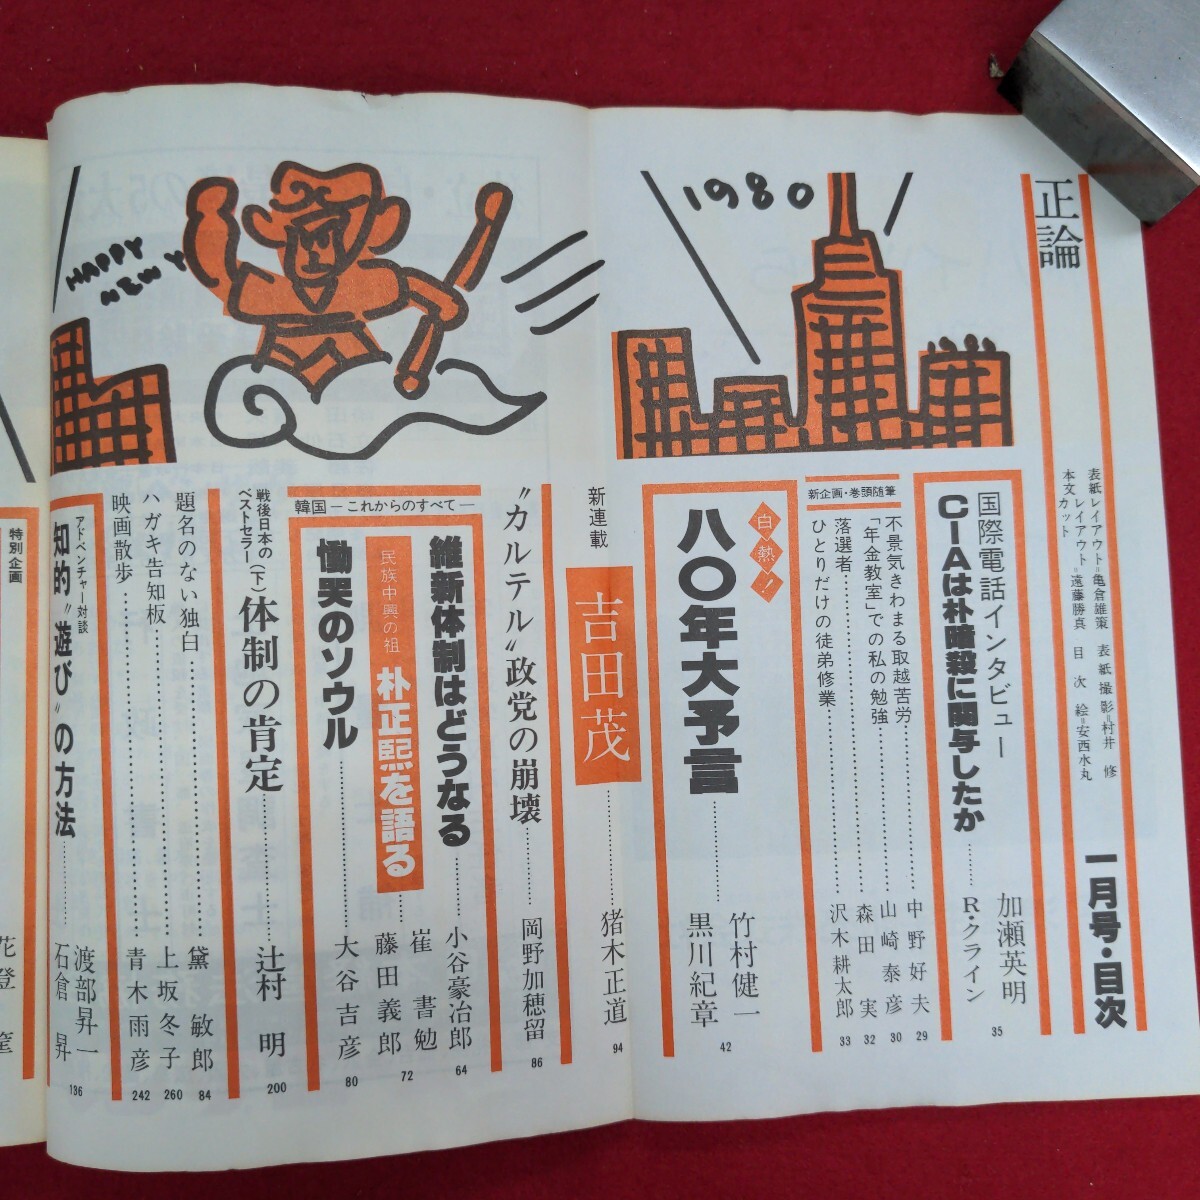 正論
一月号・目次
表紙レイアウト=亀倉雄策 表紙撮影=村井 修
レイアウト=遠藤勝真 目次絵=安西水丸
本文カット
1980
HAPPY
NEW Y
国際電話インタビュー
CIAは朴暗殺に関与したか
加瀬英明
R・クライン
35
新企画・巻頭随筆
不景気きわまる取越苦労
中野好夫
29
「年金教室」での私の勉強
山崎泰彦
30
落選者
森田 実
32
ひとりだけの徒弟修業
沢木耕太郎
33
白熱!
八〇年大予言
竹村健一
黒川紀章
42
新連載
吉田茂
猪木正道
94
"カルテル"政党の崩壊
岡野加穂留
86
韓国―これからのすべて―
維新体制はどうなる
小谷豪冶郎
64
民族中興の祖
朴正熙を語る
崔 書勉
藤田義郎
72
慟哭のソウル
大谷吉彦
80
戦後日本の
ベストセラー(下)
体制の肯定
辻村 明
200
題名のない独白
黛 敏郎
84
ハガキ告知板
上坂冬子
260
映画散歩
青木雨彦
242
アドベンチャー対談
知的"遊び"の方法
渡部昇一
石倉 昇
136
特別企画
花登 筐